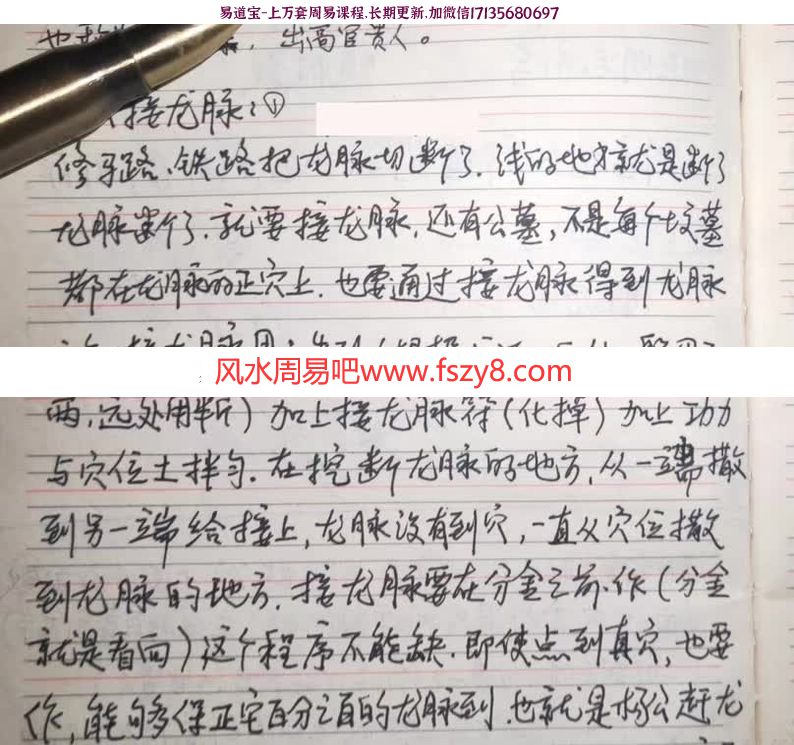 易道宝-上万套周易课程.长期更新.加微信17135680697
出高官贵人。
接龙脉:①
修马路、铁路把龙脉切断了.线的地方就是断了
龙脉断了.就要接龙脉,还有公墓,不是每个坟墓
都在龙脉的正穴上.也要通过接龙脉得到龙脉
风水周易吧www.fszy8.com
两,远处用斤)加上接龙脉符(化掉)加上功力
与穴位土拌匀.在挖断龙脉的地方,从一端撒
到另一端给接上,龙脉没有到穴,一直从穴位撒
到龙脉的地方.接龙脉要在分金之前作(分金
就是看向)这个程序不能缺.即使点到真穴,也要
作,能够保正它百分之百的龙脉到.也就是杨公赶龙